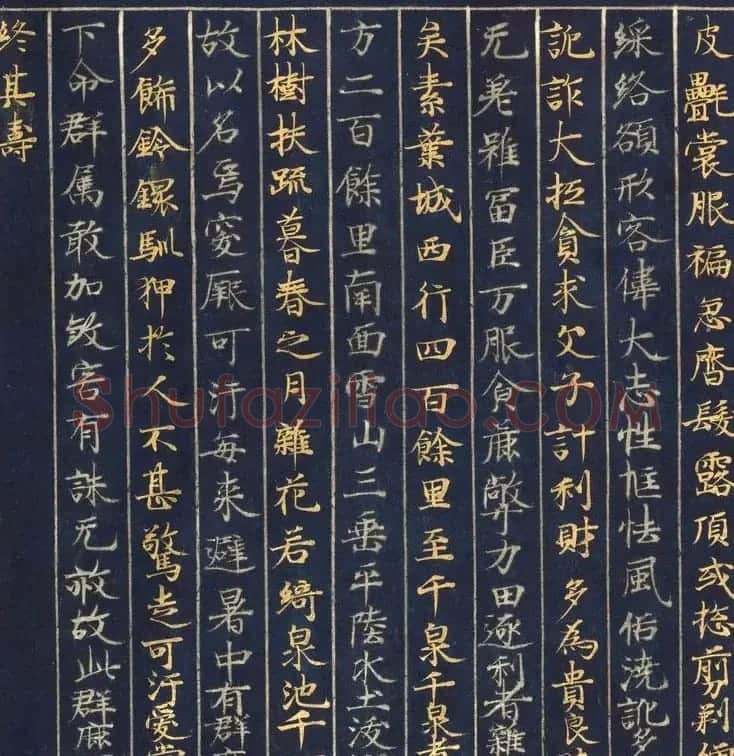 皮氎裳服褊急齊髮露頂或捴剪剃
綵絡額形容偉大志性恇怯風俗澆訛多
詭詐大抵貪求父子計利財多為貴良
无差雖冨巨万服食麁弊力田逐利者雜
矣素葉城西行四百餘里至千泉千泉者
方二百餘里南面雪山三垂平陸水土沃
林樹扶疏暮春之月雜花若綺泉池千
故以名焉突厥可汗每来避暑中有群鹿
多飾鈴鐶馴狎於人不甚驚走可汗愛賞
下命群属敢加煞害有誅无赦故此群鹿
終其壽
Shufazihao.COM